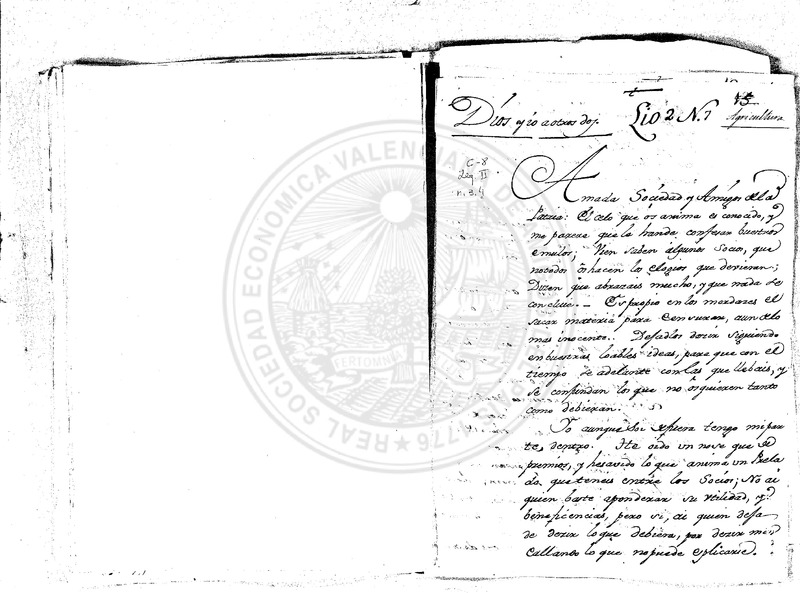 Dios y io a otros dos.
Lio 2 N. 7
15
Agricultura
C-8
Leg. II
n. 3.4
Amada Sociedad y Amigos de la
Patria: El celo que os anima es conocido, y
me parece que la handa confesar buestros
emulos; Vien saben algunos Socios, que
no todos os hacen los elogios que devieran;
Dizen que abrazais mucho, y que nada se
concluie. Es propio en los mordazes el
sacar materia para censurar, aun de lo
mas inocente. Dejadlos dezir siguiendo
en buestras loables ideas, para que con el
tiempo se adelante con las que llebais, y
se confundan los que no os quieren tanto
como debieran.
Io aunque soi de fuera tengo mi par
te, dentro. He oido un no se que de
premios, y he savido lo que anima un Prela
do que teneis entre los Socios; No ai
quien baste a ponderar su utilidad, y
beneficencias, pero si, ai quien deja
de dezir lo que debiera, por dezir mas
callando lo que no puede esplicarse.
REAL SOCIEDAD ECONOMICA VALENCIANA DE
1776